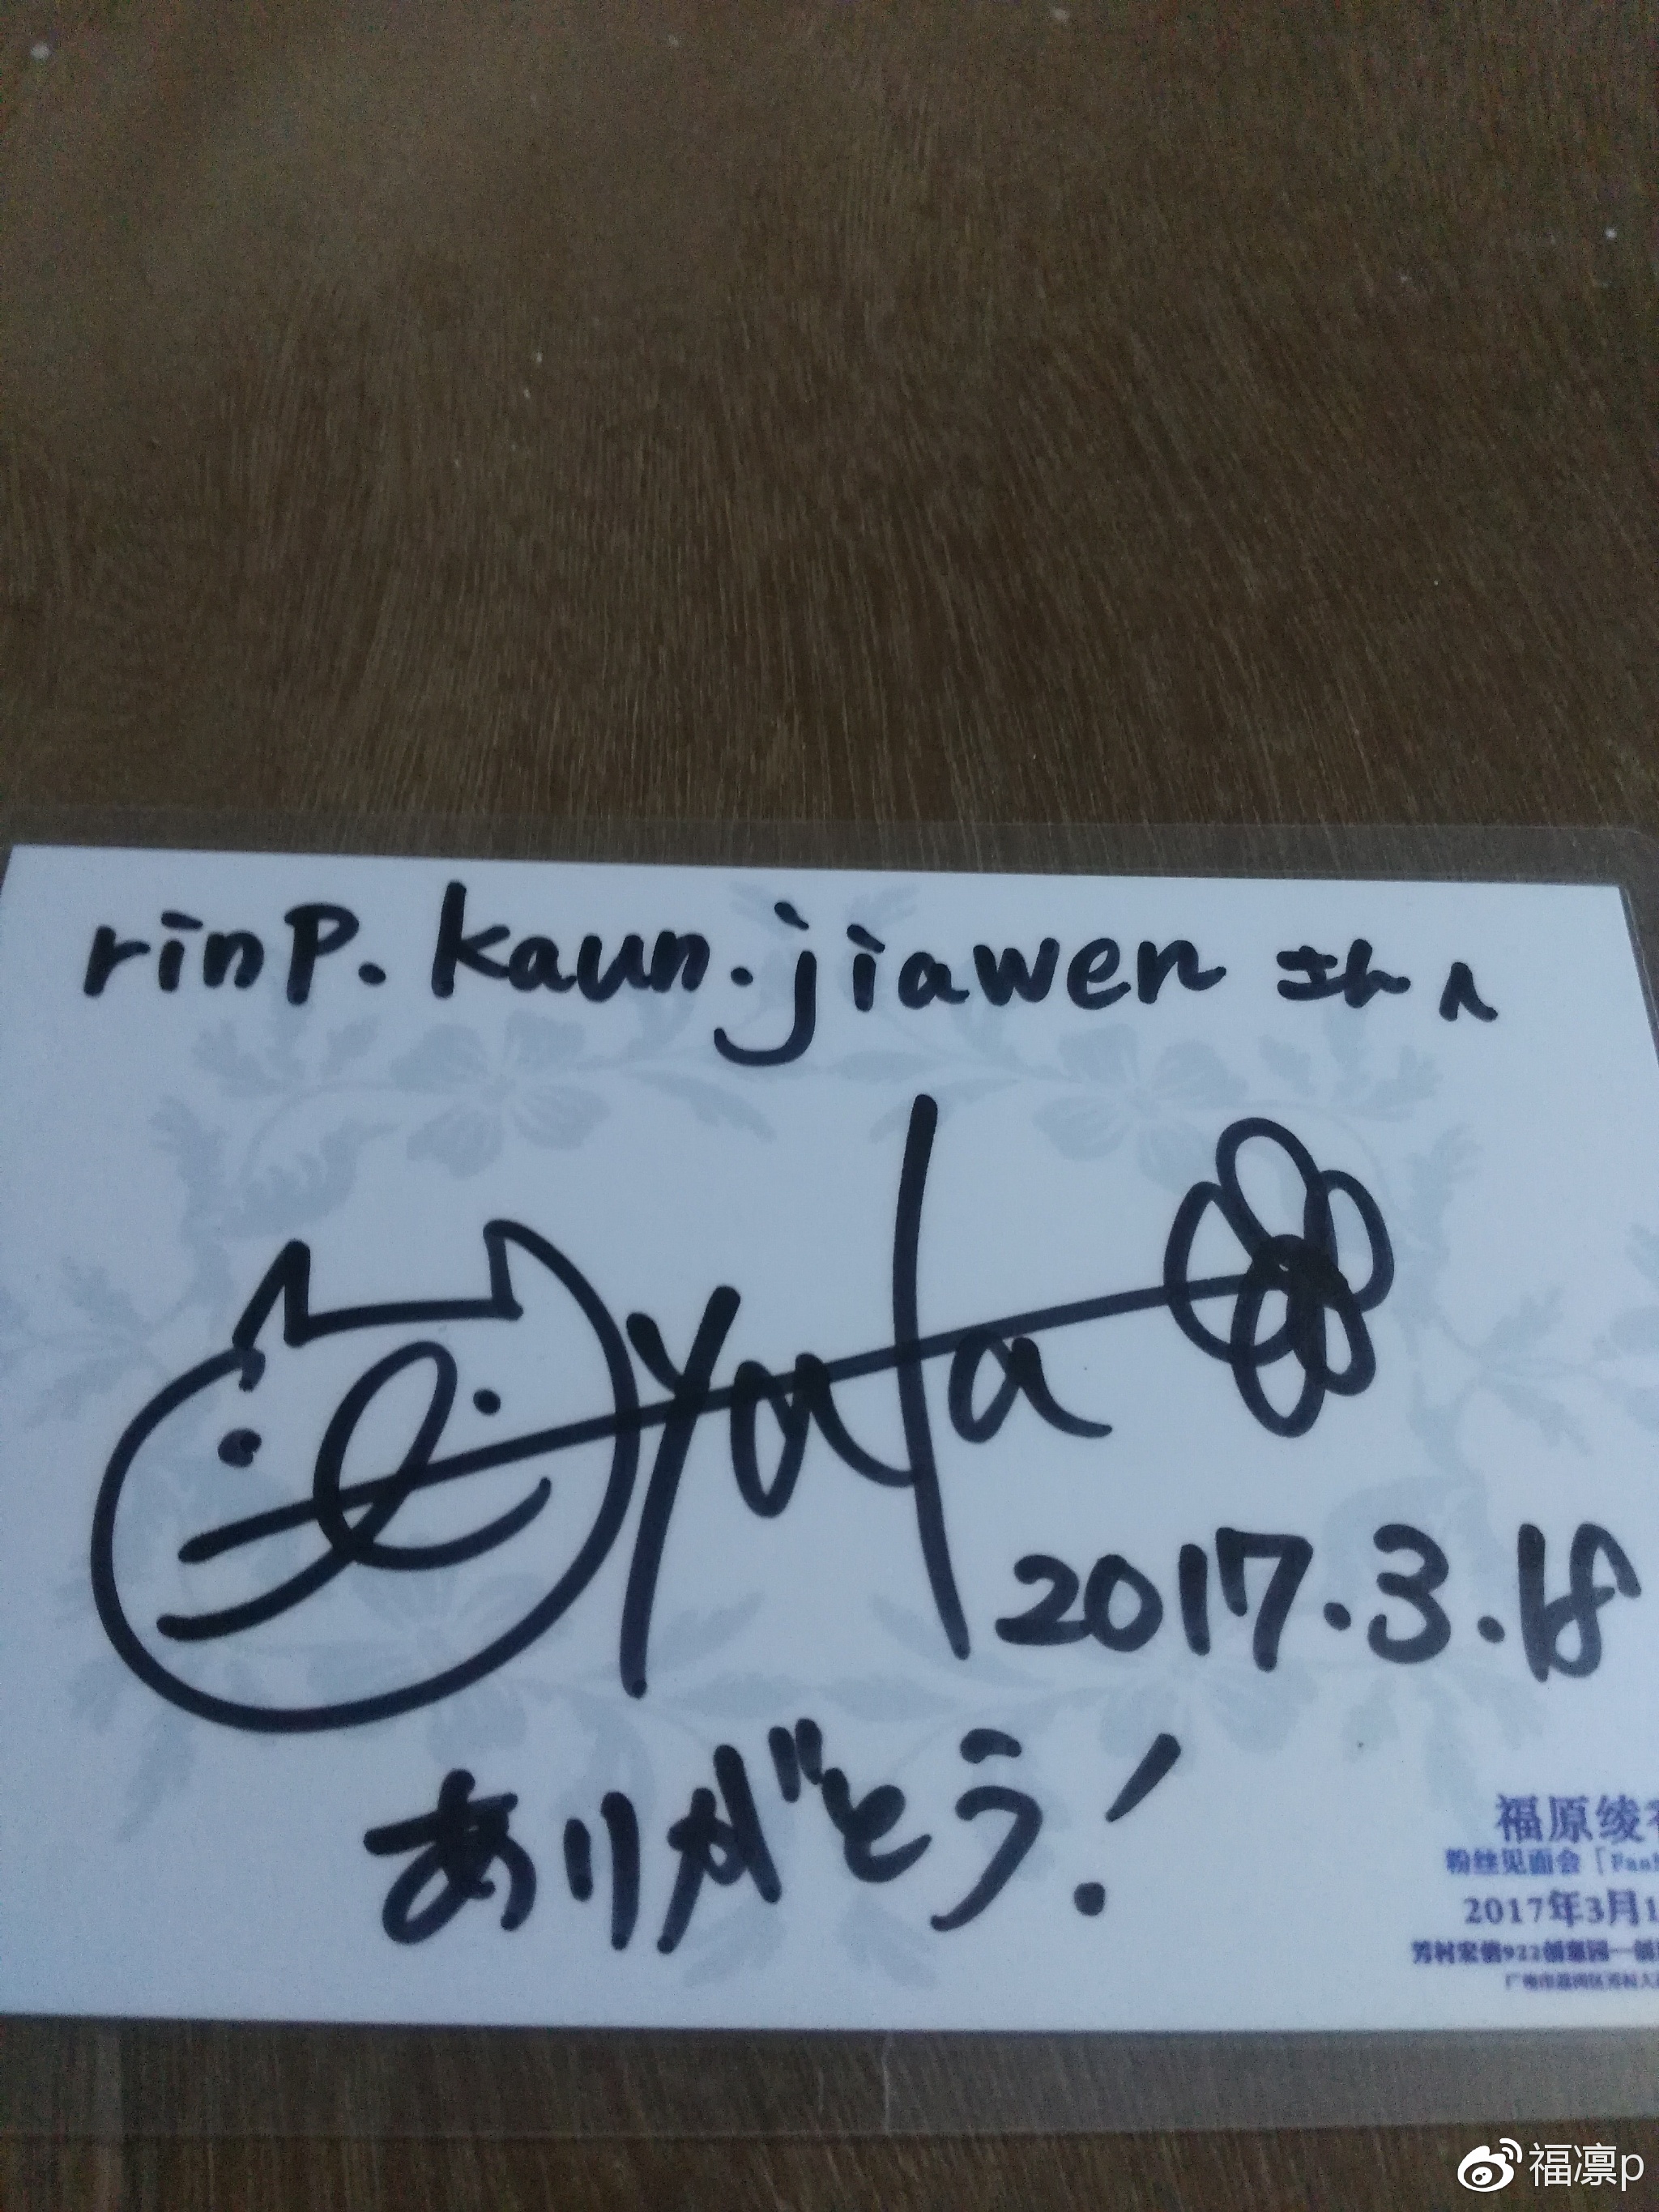 rinP.kaun.jiawen さんへ
Ayata
2017.3.18
ありがとう!
福原绫
粉丝见面会「Fan
2017年3月1
芳村宏信922创意园一创
福凛p